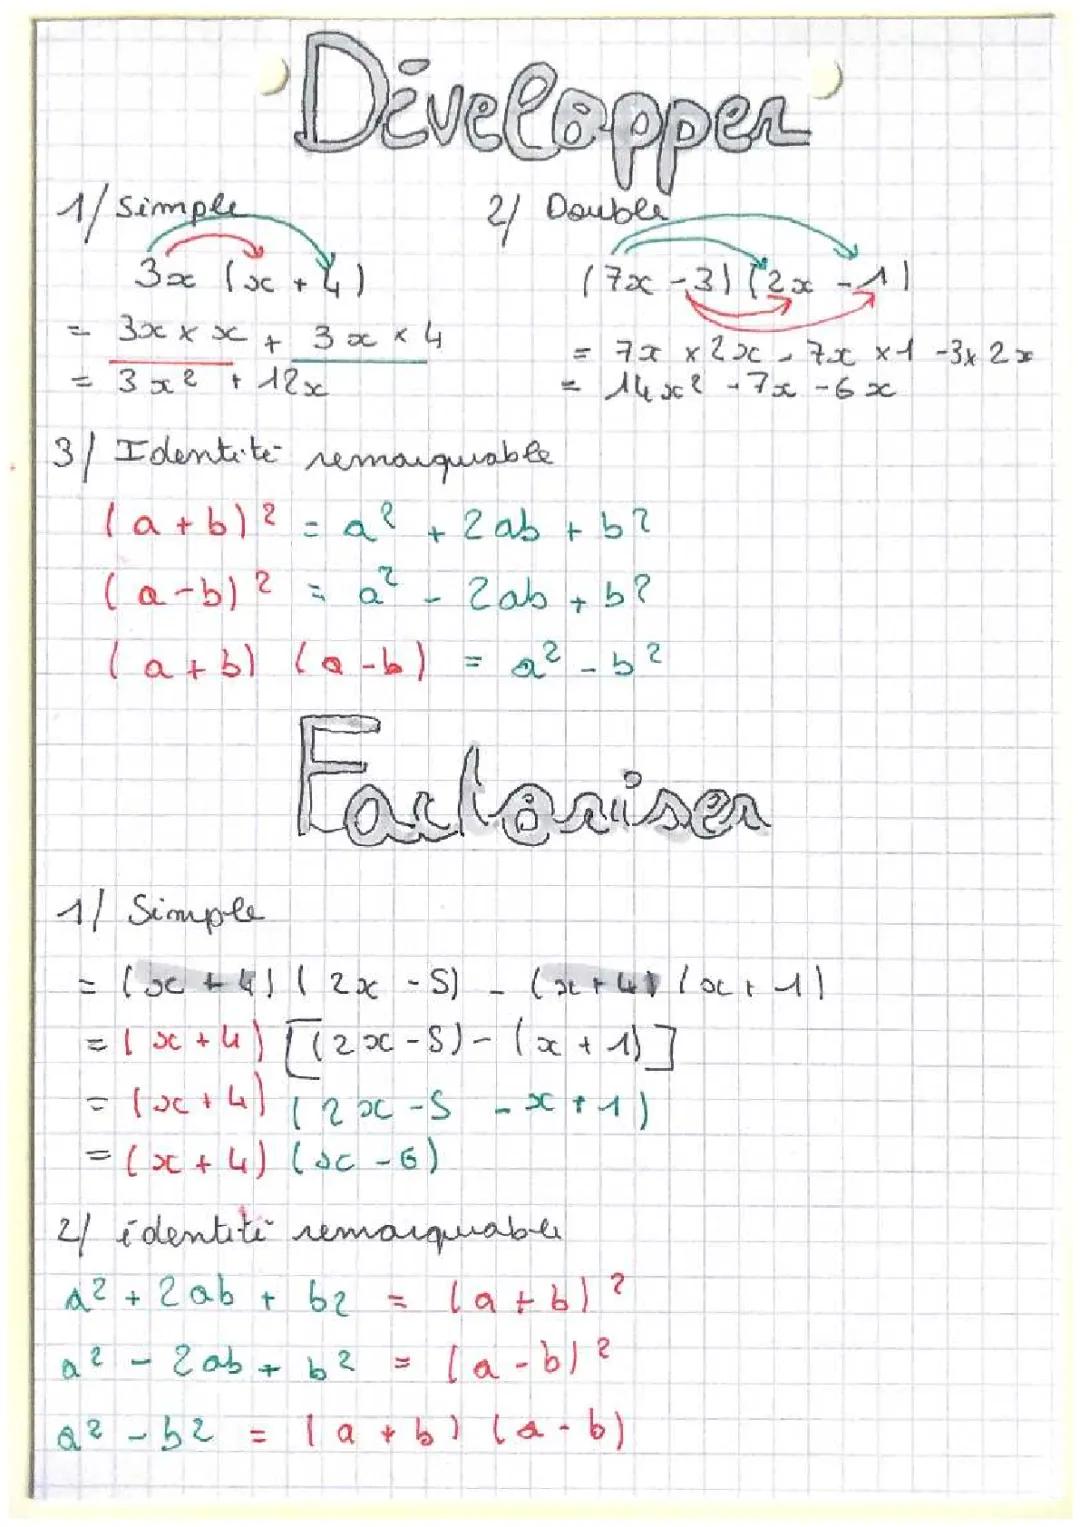 Développer
1/ Simple
3x (x + 4)
= 3x × x + 3x × 4
= 3x² + 12x
2/ Double
(7x - 3) (2x - 1)
= 7x × 2x - 7x × 1 - 3x 2x
= 14x² - 7x - 6x
3/ Identité remarquable
(a + b)² = a² + 2ab + b²
(a - b)² = a² - 2ab + b²
(a + b) (a - b) = a² - b²
Factoriser
1/ Simple
= (x + 4) (2x - 5) - (x + 4) (x + 1)
= (x + 4) [(2x - 5) - (x + 1)]
= (x + 4) (2x - 5 - x + 1)
= (x + 4) (x - 6)
2/ identité remarquable
a² + 2ab + b2 = (a + b)²
a² - 2ab + b² = (a - b)²
a² - b2 = (a + b) (a - b)